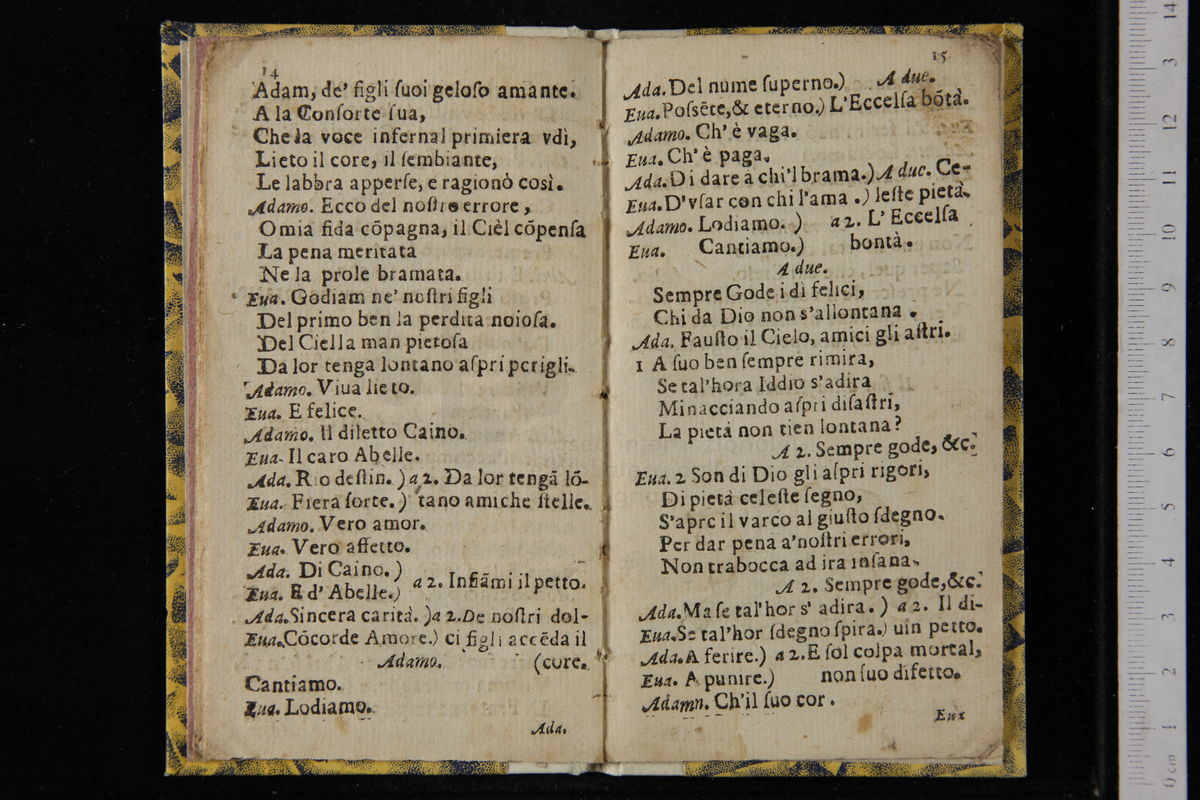 14
Adam, de' figli ſuoi geloſo amante.
A la Conſorte ſua,
Che la voce infernal primiera vdì,
Lieto il core, il ſembiante,
Le labbra apperſe, e ragionò così.
Adamo. Ecco del noſtro errore,
O mia fida cōpagna, il Cièl cōpenſa
La pena meritata
Ne la prole bramata.
Eua. Godiam ne' noſtri figli
Del primo ben la perdita noioſa.
Del Ciella man pietoſa
Da lor tenga lontano aſpri perigli.
Adamo. Viua lieto.
Eua. E felice.
Adamo. Il diletto Caino.
Eua. Il caro Abelle.
Ada. Rio deſtin. ) a 2. Da lor tengā lō-
Eua. Fiera ſorte. ) tano amiche ſtelle.
Adamo. Vero amor.
Eua. Vero affetto.
Ada. Di Caino. )
a 2. Infiāmi il petto.
Eua. E d' Abelle.)
Ada. Sincera carità. ) a 2. De noſtri dol-
Eua. Cōcorde Amore.) ci figli accēda il
Adamo. (core.
Cantiamo.
Eua. Lodiamo.
Ada.
15
Ada. Del nume ſuperno.) A due.
Eua. Poſsēte, & eterno.) L'Eccelſa bōtà.
Adamo. Ch' è vaga.
Eua. Ch' è paga.
Ada. Di dare à chi'l brama.) A due. Ce-
Eua. D'vſar con chi l'ama .) leſte pietà.
Adamo. Lodiamo. ) a 2. L' Eccelſa
Eua. Cantiamo.) bontà.
A due.
Sempre Gode i dì felici,
Chi da Dio non s'allontana .
Ada. Fauſto il Cielo, amici gli aſtri.
1 A ſuo ben ſempre rimira,
Se tal'hora Iddio s'adira
Minacciando aſpri diſaſtri,
La pietà non tien lontana?
A 2. Sempre gode, &c.
Eua. 2 Son di Dio gli aſpri rigori,
Di pietà celeſte ſegno,
S'apre il varco al giuſto ſdegno.
Per dar pena a'noſtri errori,
Non trabocca ad ira inſana.
A 2. Sempre gode, &c.
Ada. Ma ſe tal'hor s' adira. ) a 2. Il di-
Eua. Se tal'hor ſdegno ſpira.) uin petto.
Ada. A ferire.) a 2. E ſol colpa mortal,
Eua. A punire.) non ſuo difetto.
Adamn. Ch'il ſuo cor .
Eua